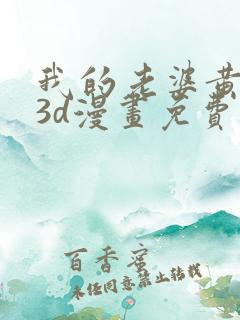 我的老婆黄
3d漫畫免費
百香蜜
未经同意禁止转载